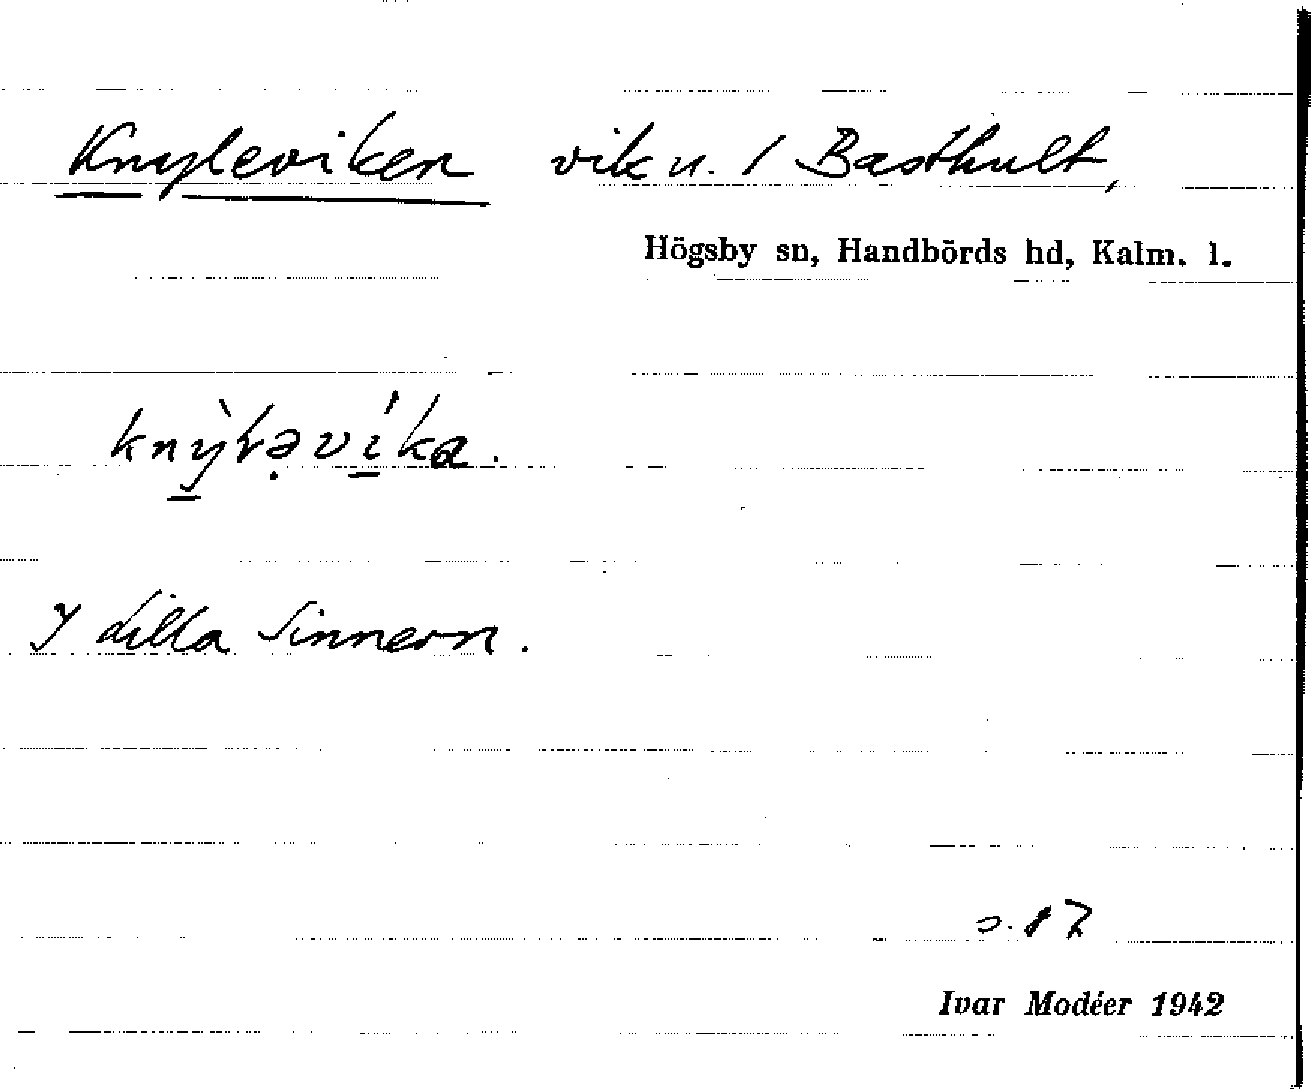 Knyleviken vik u. / Basthult,
Högsby sn, Handbörds hd, Kalm. l.
I Lilla Sinnern.
s. 87
Ivar Modéer 1942